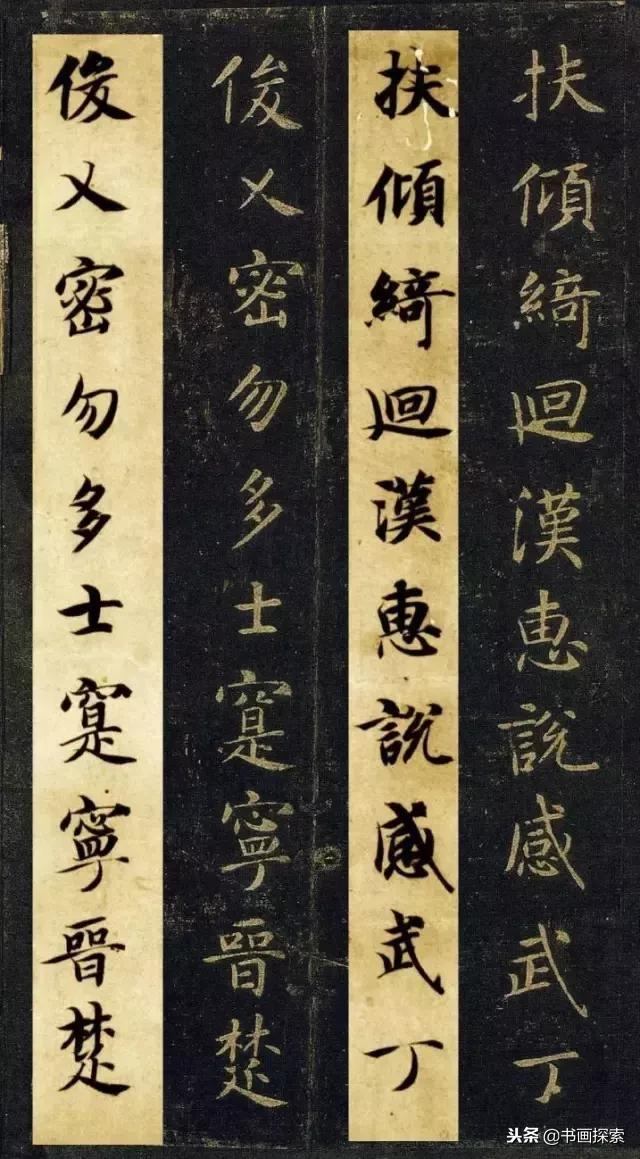 扶傾綺迴漢惠說感武丁
扶傾綺迴漢惠說感武丁
俊乂密勿多士寔寧晉楚
俊乂密勿多士寔寧晉楚
头条 @书画探索